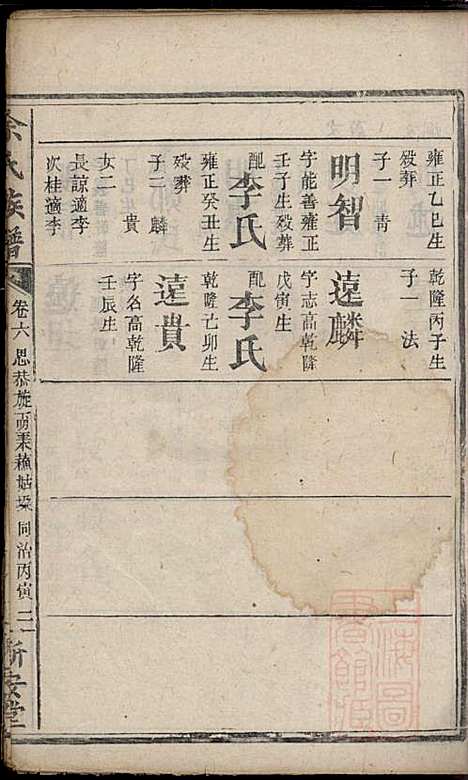 雍正乙巳生
歿葬
子一青
明智
字能善雍正
壬子生歿葬
配李氏
雍正癸丑生
歿葬
子二麟
貴
女二
長諒適李
次桂適李
乾隆丙子生
子一法
遠麟
字志高乾隆
戊寅生
配李氏
乾隆己卯生
遠貴
字名高乾隆
壬辰生
余氏族譜
卷六
思恭旋
同治丙寅
新安堂